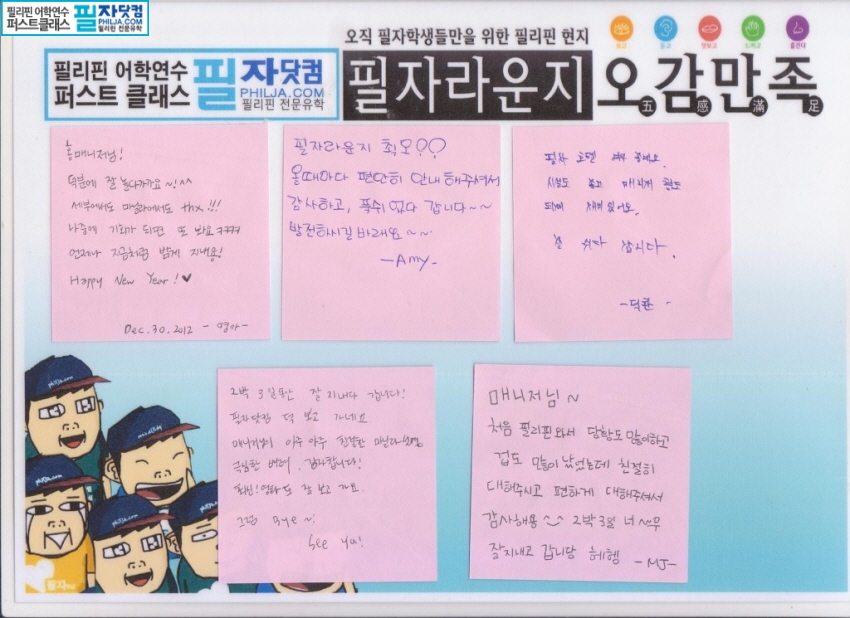 필리핀 어학연수
퍼스트클래스
필자닷컴
PHILJA.COM
필리핀 전문유학
필리핀 어학연수
퍼스트 클래스
필자닷컴
PHILJA.COM
필리핀 전문유학
오직 필자학생들만을 위한 필리핀 현지
필자라운지
오감만족
五感滿足
홍매니저님!
덕분에 잘 놀다가가요~!^^
세부에서도 마닐라에서도 thx!!!
나중에 기회가 되면 또 봐요 ㅋㅋㅋㅋ
언제나 지금처럼 밝게 지내용!
Happy New Year! ♥
Dec. 30. 2012
필자라운지 최고♡♡
올때마다 편안히 안내해주셔서
감사하고, 푹쉬었다 갑니다~~
발전하시길 바래요~~
-Amy-
필자 호텔 너무 좋네요.
시설도 좋고 매니저
재미있어요.
잘 쉬다 갑니다.
2박 3일동안 잘 지내다 갑니다!
필자닷컴 덕 보고 가네요
매니저님이 아주 아주 친절한
감사합니다!
잘 보고 가요.
그럼 Bye~!
See ya!
매니저님~
처음 필리핀와서 당황도 많이하고
겁도 많이 났었는데 친절히
대해주시고 편하게 대해주셔서
감사해용 ^^ 2박3일 너~무
잘지내고 갑니당 헤헿 -MJ-
philja.com
philja.com
philja.com
필자